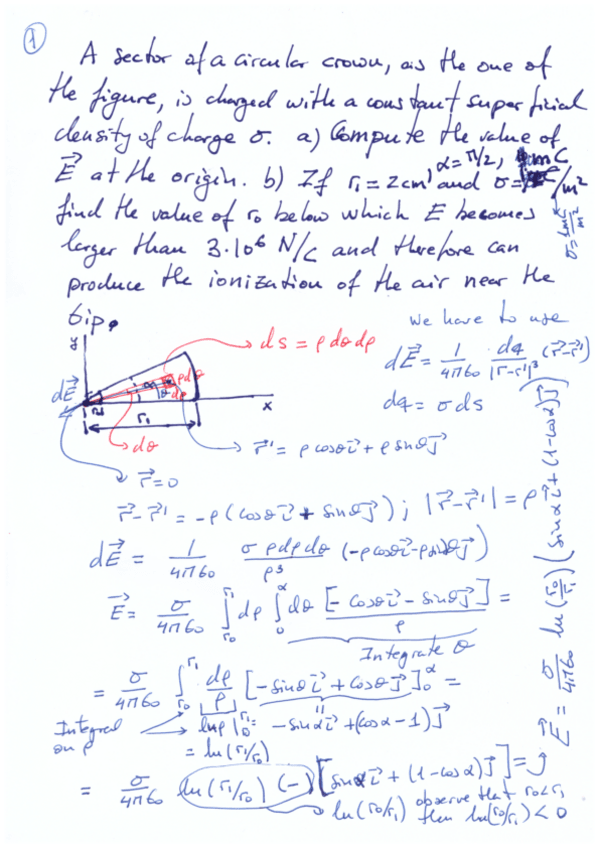 1
A sector of a circular crown, as the one of
the figure, is charged with a constant superficial
density of charge σ. a) Compute the value of
E⃗ at the origin. b) If r₁ = 2cm, α = π/2, and σ = 1 mC/m²
find the value of r₀ below which E becomes
larger than 3·10⁶ N/C and therefore can
produce the ionization of the air near the
tip.
we have to use
y
ds = ρ dθ dρ
dE⃗ = 1/4πε₀ dq/|r⃗-r⃗'|³ (r⃗-r⃗')
dE⃗
α
θ
ρdθ
dρ
x
dq = σ ds
r₁
dθ
r⃗' = ρ cosθ i⃗ + ρ sinθ j⃗
r⃗ = 0
r⃗-r⃗' = -ρ (cosθ i⃗ + sinθ j⃗) ; |r⃗-r⃗'| = ρ
dE⃗ = 1/4πε₀ σ ρdρdθ/ρ³ (-ρcosθ i⃗ - ρsinθ j⃗)
E⃗ = σ/4πε₀ ∫r₀^r₁ dρ ∫0^α dθ [-cosθ i⃗ - sinθ j⃗]/ρ =
Integrate θ
= σ/4πε₀ ∫r₀^r₁ dρ/ρ [-sinθ i⃗ + cosθ j⃗]0^α =
Integral
on ρ
lnρ |r₀^r₁ = -sinα i⃗ + (cosα - 1) j⃗
= ln(r₁/r₀)
= σ/4πε₀ ln(r₁/r₀) (-) [sinα i⃗ + (1-cosα) j⃗] =
ln(r₀/r₁) observe that r₀<r₁
then ln(r₀/r₁) < 0
E⃗ = σ/4πε₀ ln(r₀/r₁) (sinα i⃗ + (1-cosα) j⃗)